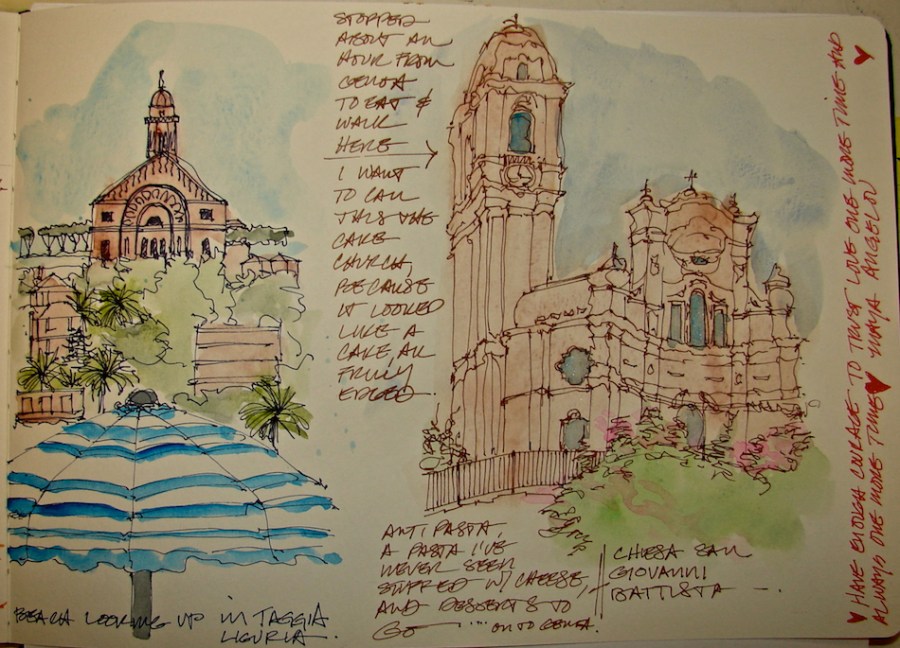 STOPPED
ABOUT AN
HOUR FROM
GENOA
TO EAT &
WALK
HERE →
I WANT
TO CALL
THIS THE
CAKE
CHURCH,
BECAUSE
IT LOOKED
LIKE A
CAKE ALL
FRILLY
EDGED
ANTIPASTA,
A PASTA I'VE
NEVER SEEN
STUFFED W/ CHEESE,
AND DESSERTS TO
GO .... ON TO GENOA.
CHIESA SAN
GIOVANNI
BATTISTA
BEACH LOOKING UP IN TAGGIA
LIGURIA.
♥ HAVE ENOUGH COURAGE TO TRUST LOVE ONE MORE TIME AND ♥
ALWAYS ONE MORE TIME ♥ MAYA ANGELOU